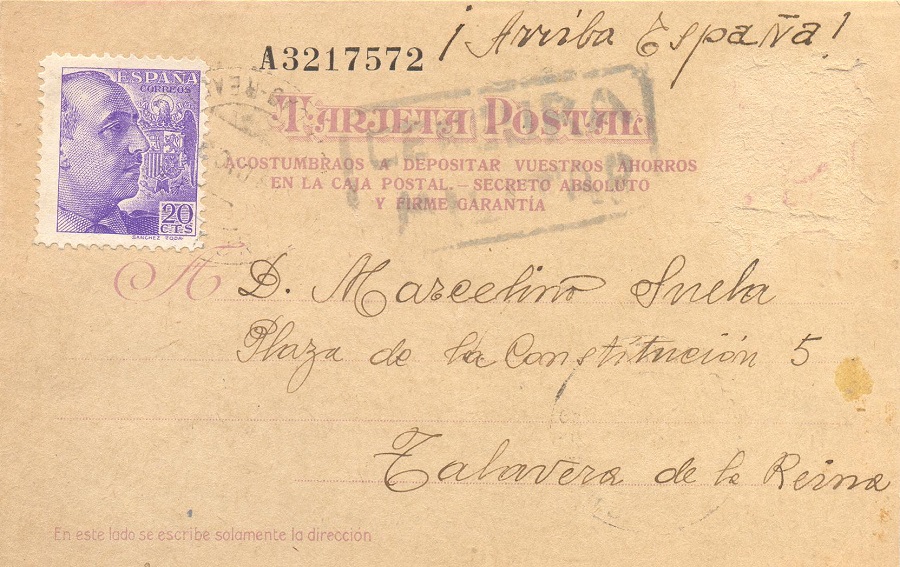 ¡Arriba España!
A3217572
ESPAÑA
CORREOS
20
CTS
SANCHEZ TODA
TARJETA POSTAL
ACOSTUMBRAOS A DEPOSITAR VUESTROS AHORROS
EN LA CAJA POSTAL.—SECRETO ABSOLUTO
Y FIRME GARANTÍA
CENSURA
A D. Marcelino Suela
Plaza de la Constitución 5
Talavera de la Reina
En este lado se escribe solamente la dirección